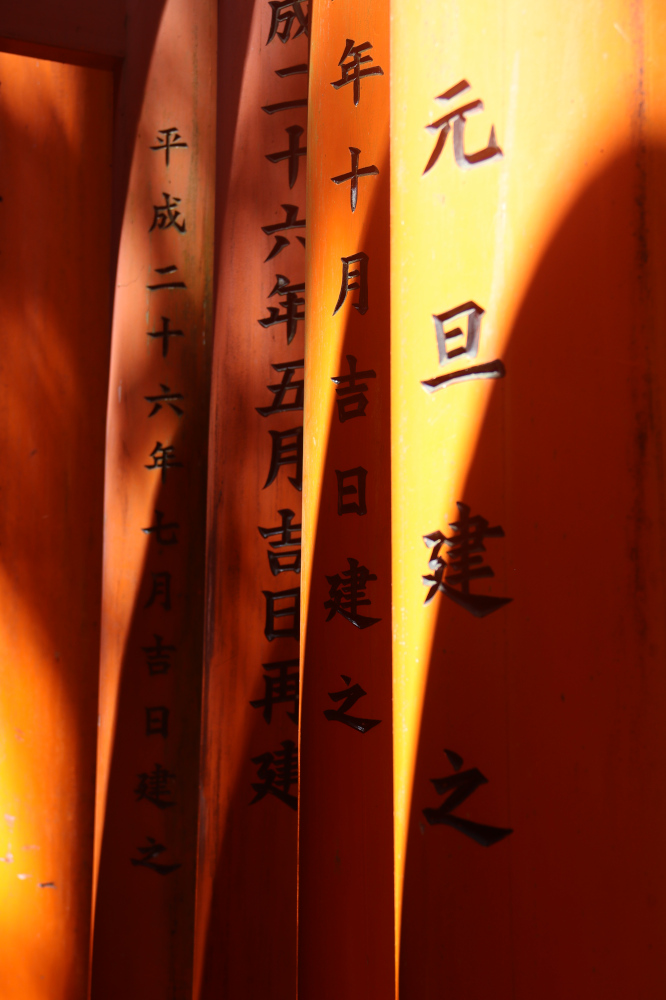 元旦建之
年十月吉日建之
成二十六年五月吉日再建
平成二十六年七月吉日建之